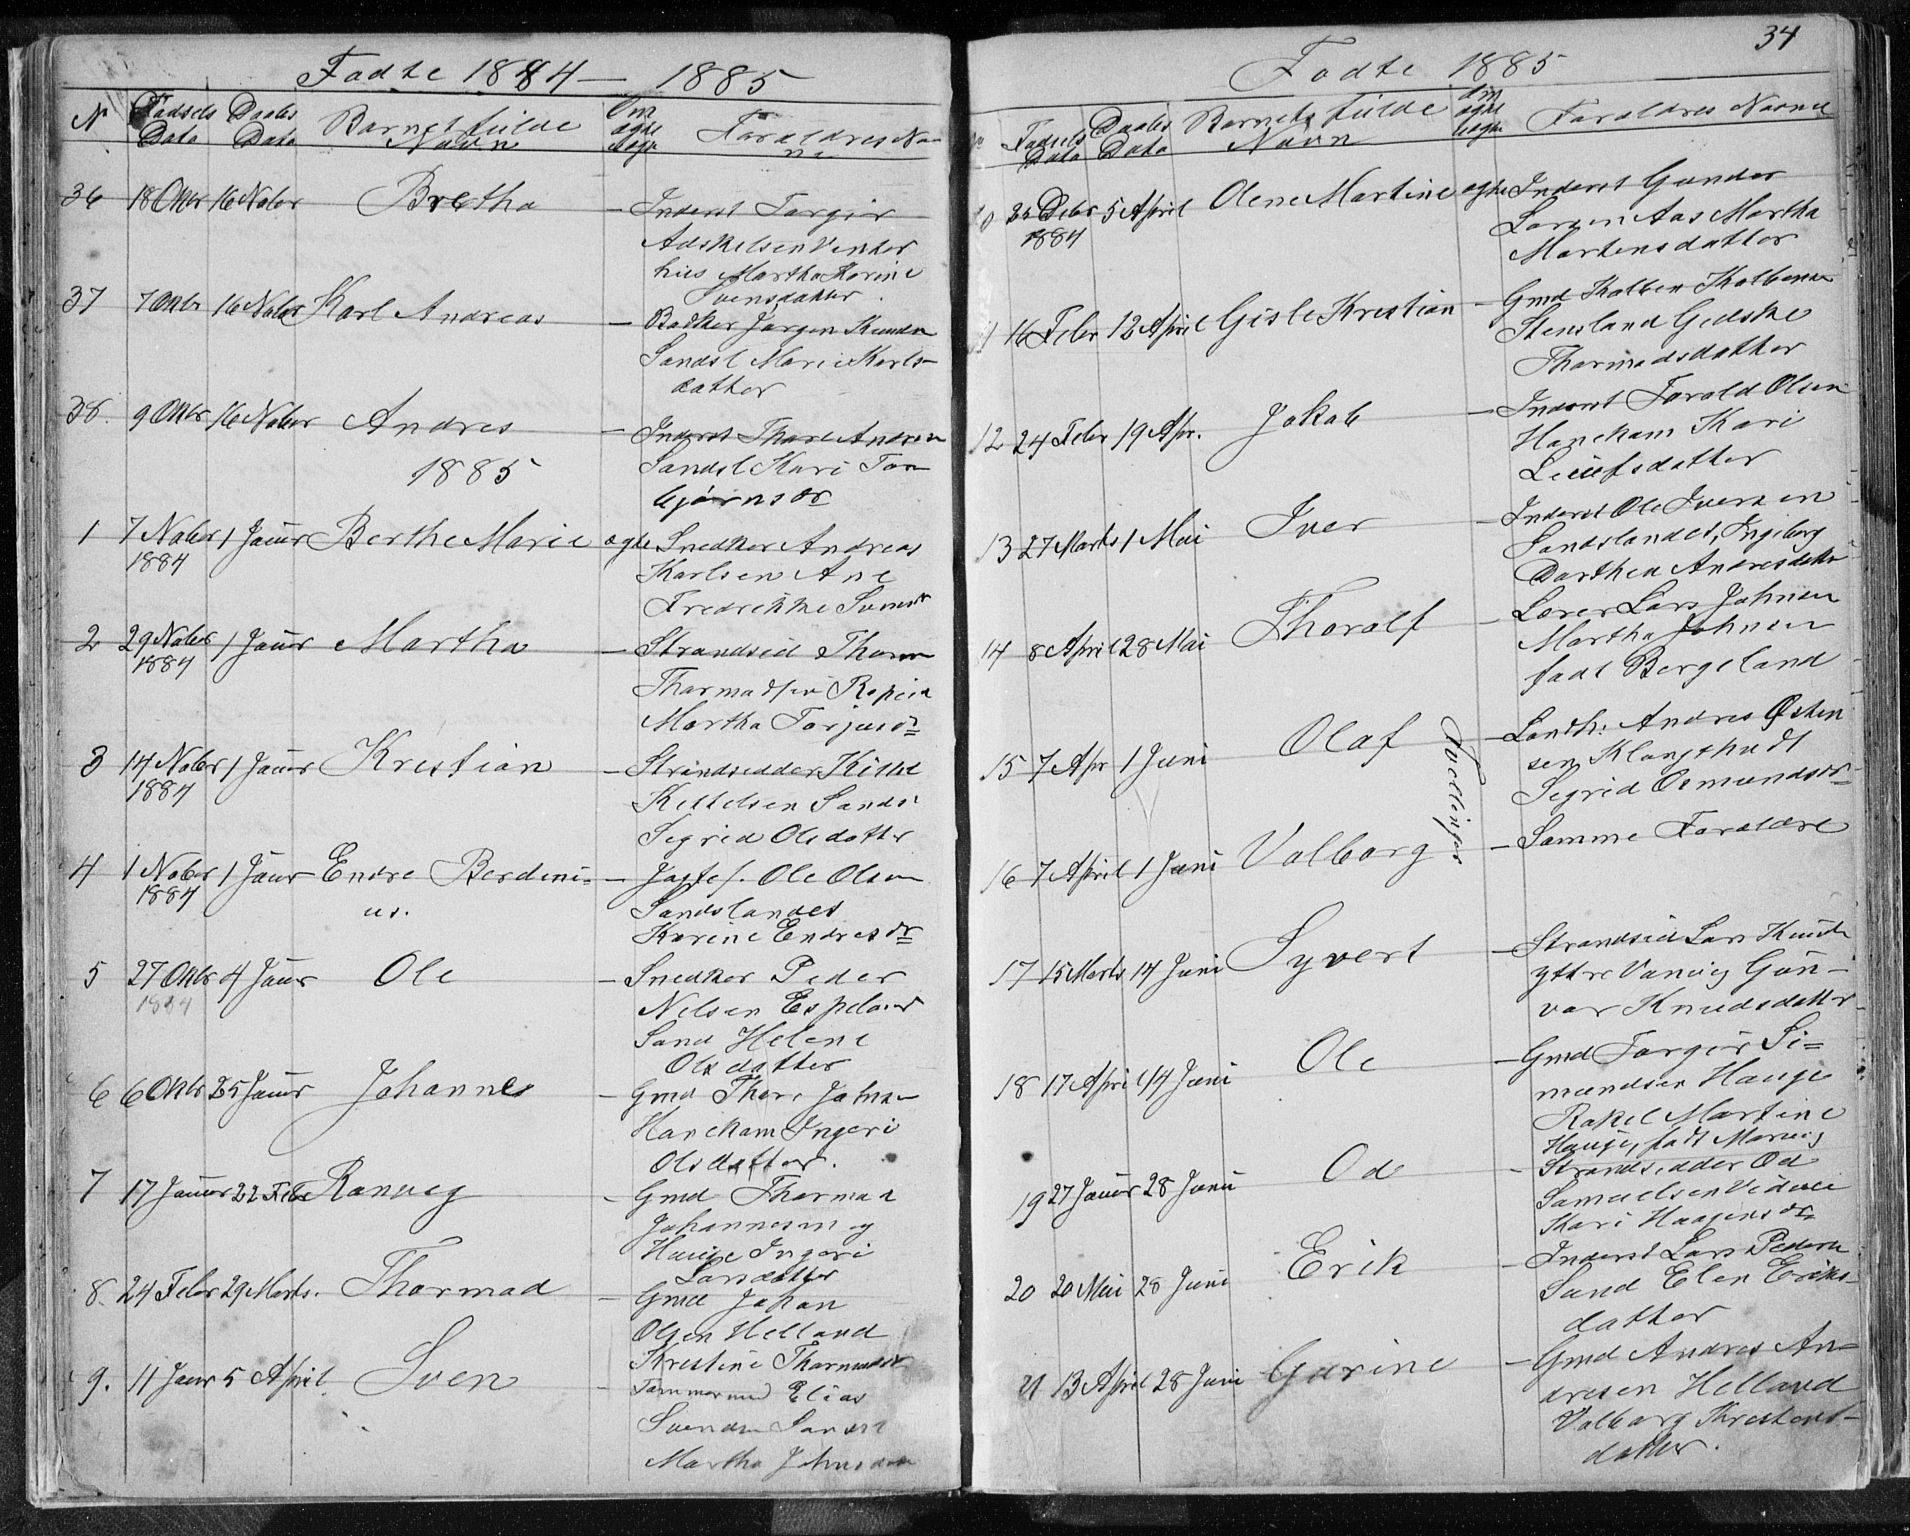 Fødte 1884 — 1885
N Fødsels Daabs Barnets fulde Om Forældres Na-
Dato Dato Navn ægte
36 18 Oktbr 16 Novbr Bretha — Inderst Torgier
Adskelsen Venter
hus Martha Karine
Svensdatter
37 7 Oktbr 16 Novbr Karl Andreas — Bødker Jørgen Knuds
Sandsl Marie Karls-
datter
38. 9 Oktbr 16 Novbr Andres — Inderst Thore Andresen
Sandsl Kari Tor-
bjørnsdr
1885
1 7 Novbr 1 Janur Berthe Marie ægte Snedker Andreas
1884 Karlsen Ane
Fredrikke Svensdr
2 29 Novbr 1 Janur Martha — Strandsid Thorm
1884 Thormodsen
Martha Torjusdr
3 14 Novbr 1 Janur Kristian — Strandsidder Kittel
1884 Kittelsen Sandsl
Sigrid Olsdatter
4 1 Novbr 1 Janur Endre Berdini- — Jagtef. Ole Olsen
1884 us. Sandslandet
Karine Endresdr
5 27 Oktbr 4 Janur Ole — Snedker Peder
1884 Nelsen Espeland
Sand Helene
Olsdatter
6 6 Oktbr 25 Janur Johannes — Gmd Thore Johnsen
Hanekam Ingeri
Olsdatter.
7 17 Januar 22 Febr Ranveg — Gmd Thormod
Johannesen og
Hauge Ingeri
Larsdatter
8. 24 Febr 29 Marts. Thormod — Gmd Johan
Olsen Helland
Kristine Thormodsdr
9. 11 Janr 5 April. Sven — Tømmermd Elias
Svendsen Sandsl
Martha Johnsdatter
34
Fødte 1885
Fødsels Daabs Barnets fulde om Forældres Navne
Dato Dato Navn ægte
10 25 Debr 5 April Olene Martine ægte Inderst Gunder
1884 Larsen Aas Martha
Mortensdatter
11 16 Febr 12 April Gisle Kristian — Gmd Kolben Kolbensen
Stensland Gidske
Thormodsdatter
12 24 Febr 19 Apr. Jakob — Inderst Torald Olsen
Hanekam Kari
Leiufsdatter
13 27 Marts 1 Mai Iver — Inderst Ole Iversen
Sandslandet, Ingiborg
Dorthea Andresdatter
14 8 April 28 Mai Thoralf — Lærer Lars Johnsen
Martha Johnsen
født Bergeland
15 7 Apr 1 Juni Olaf — Landh: Andres Østen
sen Klungtvedt
Sigrid Osmundsdr
Tvillinger
16 7 April 1 Juni Valborg — Samme Forældre
17 15 Marts 14 Juni Syvert — Strandsid Lars Knuds
yttre Vanvig Gun-
vor Knudsdatter
18 17 April 14 Juni Ole — Gmd Torgier Si=
mundsen Hauge
Rakel Martine
Hauge, født Marvig
19 27 Janur 28 Juni Od — Strandsidder Od
Samuelsen Vidvei
Kari Haagensdr
20 20 Mai 28 Juni Erik — Inderst Lars Pedersen
Sand Elen Eriks-
datter
21 13 April 28 Juni Gurine — Gmd Andres An=
dresen Helland
Valborg Kristens-
datter.